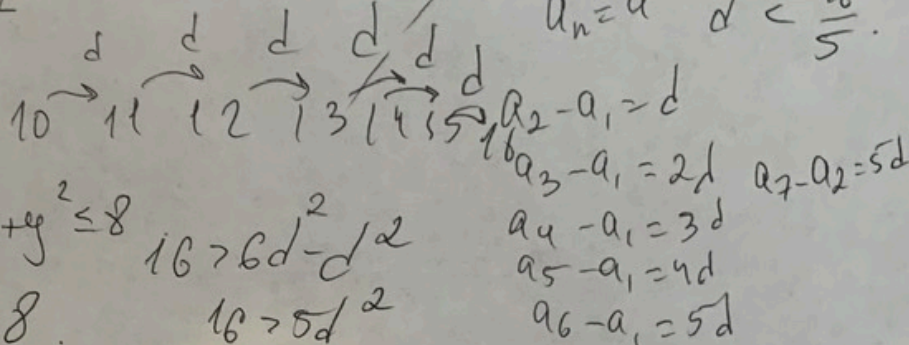 aₙ = a d < —/5.
d d d d d d
10 11 12 13 14 15 16
a₂ - a₁ = d
a₃ - a₁ = 2d a₇ - a₂ = 5d
+y² ≤ 8 16 > 6d² - d² a₄ - a₁ = 3d
a₅ - a₁ = 4d
8. 16 > 5d² a₆ - a₁ = 5d